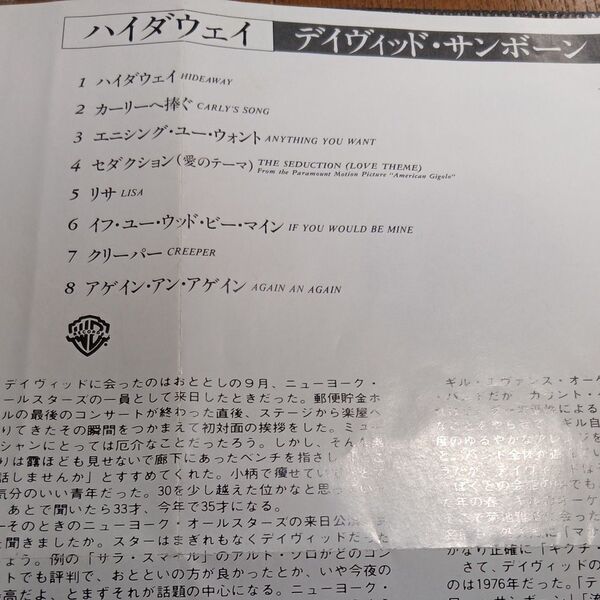 ハイダウェイ デイヴィッド・サンボーン
1 ハイダウェイ HIDEAWAY
2 カーリーへ捧ぐ CARLY'S SONG
3 エニシング・ユー・ウォント ANYTHING YOU WANT
4 セダクション(愛のテーマ) THE SEDUCTION (LOVE THEME)
From the Paramount Motion Picture "American Gigolo"
5 リサ LISA
6 イフ・ユー・ウッド・ビー・マイン IF YOU WOULD BE MINE
7 クリーパー CREEPER
8 アゲイン・アン・アゲイン AGAIN AN AGAIN
デイヴィッドに会ったのはおととしの9月、ニューヨーク・
ールスターズの一員として来日したときだった。郵便貯金ホ
ルの最後のコンサートが終わった直後、ステージから楽屋へ
りてきたその瞬間をつかまえて初対面の挨拶をした。ミュ
シャンにとっては厄介なことだったろう。しかし、そんな
りは露ほども見せないで廊下にあったベンチを指さし
話しませんか」とすすめてくれた。小柄で痩せてい
気分のいい青年だった。30を少し越えた位かなと思
あとで聞いたら33才、今年で35才になる。
そのときのニューヨーク オールスターズの来日公演
を聞きましたか。スターはまぎれもなくデイヴィッドだった
ょう。例の「サラ・スマイル」のアルト・ソロがどのコン
トでも評判で、おとといの方が良かったとか、いや今夜の
最高だよ、とまずそれが話題の中心になる。ニューヨーク・
ギル・エヴァンス・オーケ
かなり正確に「キクチ・
さて、デイヴィッドの
のは1976年だった。「テ
ー・サンボーン」「流